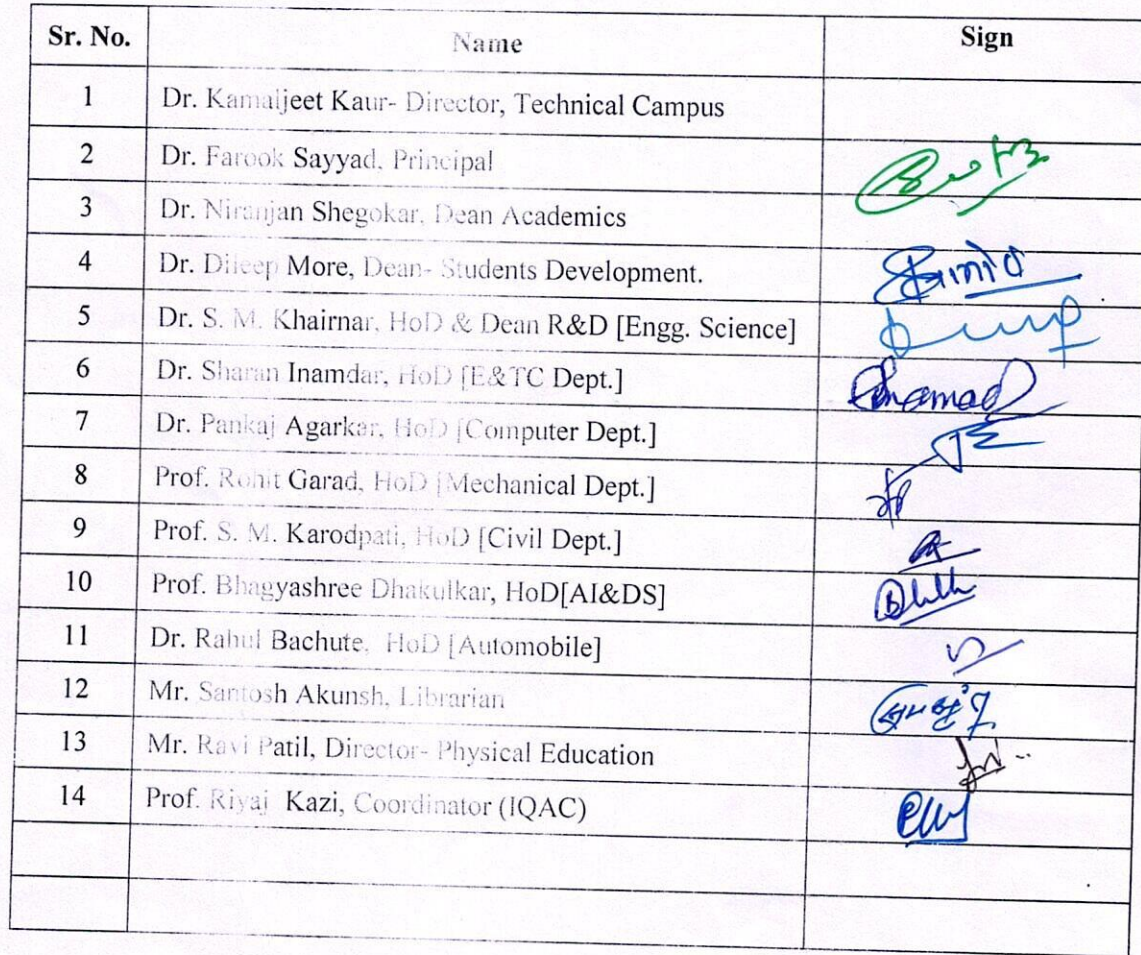 Sr. No. Name Sign
1 Dr. Kamaljeet Kaur- Director, Technical Campus
2 Dr. Farook Sayyad, Principal
3 Dr. Niranjan Shegokar, Dean Academics
4 Dr. Dileep More, Dean- Students Development.
5 Dr. S. M. Khairnar, HoD & Dean R&D [Engg. Science]
6 Dr. Sharan Inamdar, HoD [E&TC Dept.]
7 Dr. Pankaj Agarkar, HoD [Computer Dept.]
8 Prof. Rohit Garad, HoD [Mechanical Dept.]
9 Prof. S. M. Karodpati, HoD [Civil Dept.]
10 Prof. Bhagyashree Dhakulkar, HoD[AI&DS]
11 Dr. Rahul Bachute, HoD [Automobile]
12 Mr. Santosh Akunsh, Librarian
13 Mr. Ravi Patil, Director- Physical Education
14 Prof. Riyaj Kazi, Coordinator (IQAC)